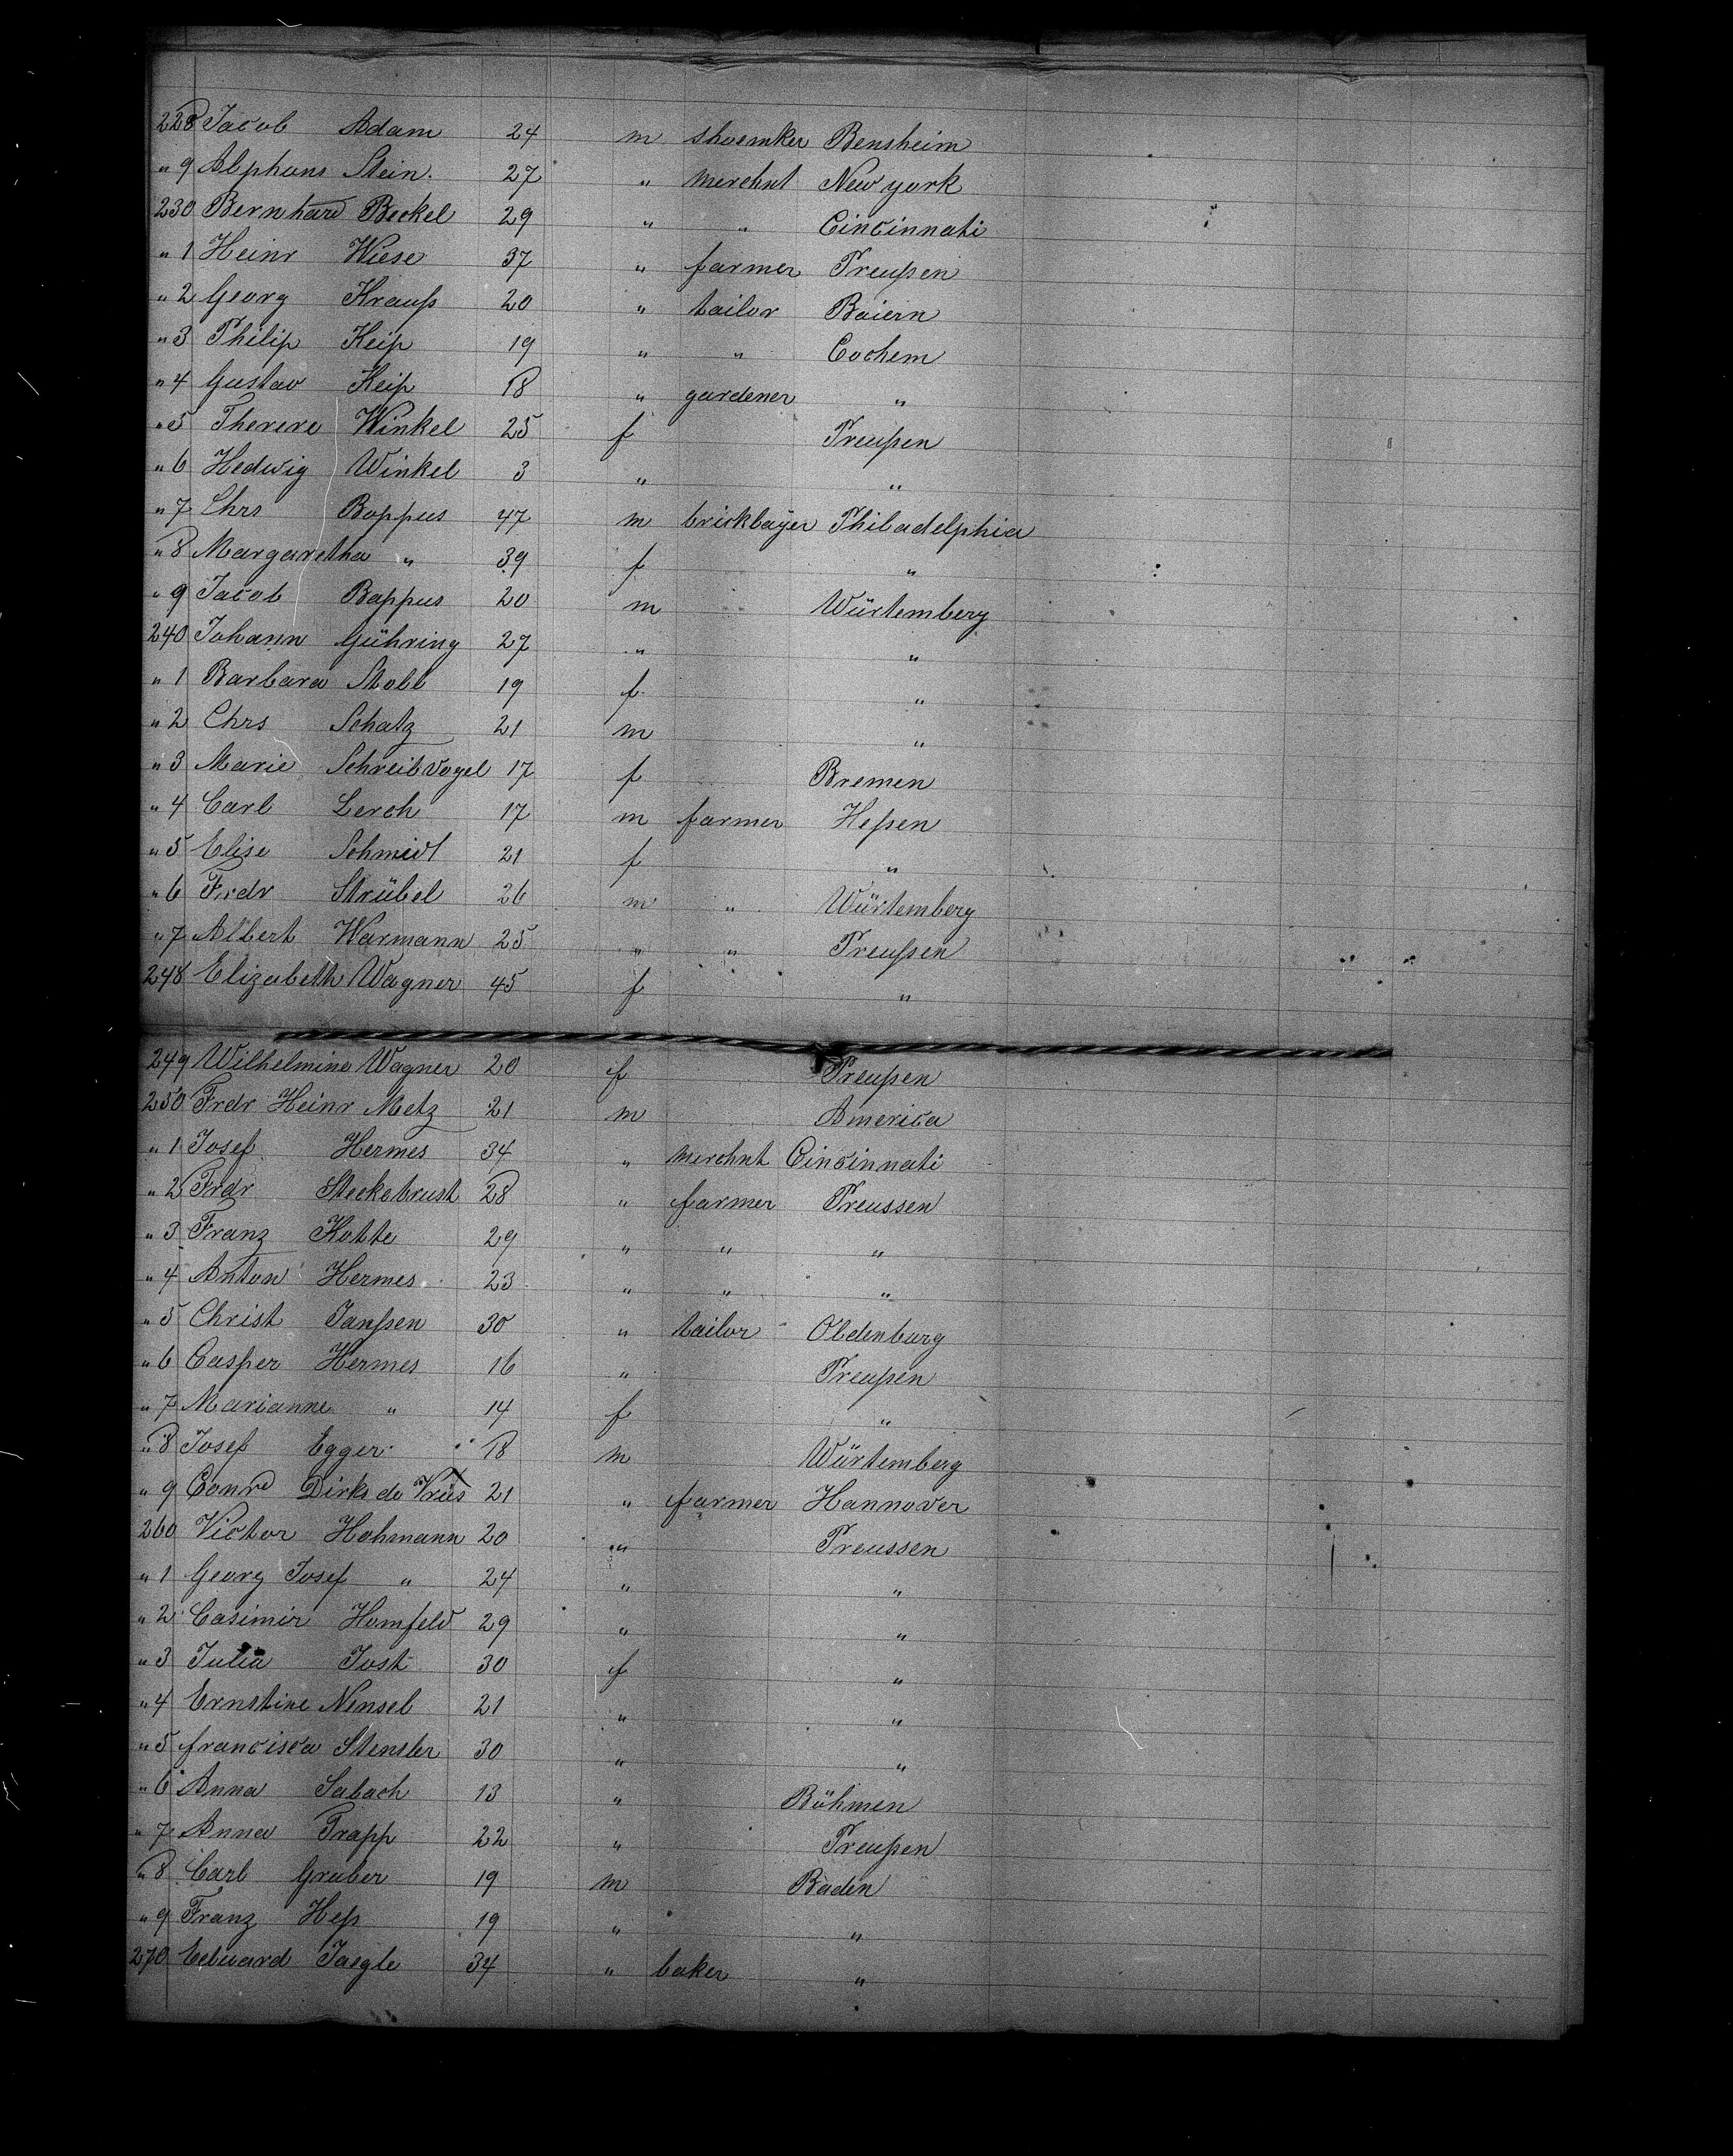 228 Jacob Adam 24 m shoemker Bensheim
" 9 Alphons Stein. 27 " merchnt New york
230 Bernhard Beckel 29 " " Cincinnati
" 1 Heinr Wiese 37 " farmer Preußen
" 2 Georg Krauß 20 " tailor Baiern
" 3 Philip Keip 19 " " Cochem
" 4 Gustav Keip 18 " gardener "
" 5 Therere Winkel 25 f Preußen
" 6 Hedwig Winkel 3 " "
" 7 Chrs Bappus 47 m bricklayer Philadelphia
" 8 Margaretha " 39 f "
" 9 Jacob Bappus 20 m Würtemberg
240 Johann Gühring 27 " "
" 1 Barbara Stoll 19 f "
" 2 Chrs Schatz 21 m "
" 3 Marie Schreibvogel 17 f Bremen
" 4 Carl Lerch 17 m farmer Heßen
" 5 Elise Schmidt 21 f "
" 6 Frdr Strübel 26 m " Würtemberg
" 7 Albert Warmann 25 " " Preußen
248 Elizabeth Wagner 45 f "
249 Wilhelmine Wagner 20 f Preußen
250 Frdr Heinr Metz 21 m America
" 1 Josef Hermes 34 " merchnt Cincinnati
" 2 Frdr Steckebrust 28 " farmer Preussen
" 3 Franz Kotte 29 " " "
" 4 Anton Hermes 23 " " "
" 5 Christ Janßen 30 " tailor Oldenburg
" 6 Casper Hermes 16 " Preußen
" 7 Marianne " 14 f "
" 8 Josef Egger 18 m Würtemberg
" 9 Conrd Dirks de Vries 21 " farmer Hannover
260 Victor Hohmann 20 " Preussen
" 1 Georg Josef " 24 " "
" 2 Casimir Homfeld 29 " "
" 3 Julia Jost 30 f "
" 4 Ernstine Nensel 21 " "
" 5 francisca Stensler 30 " "
" 6 Anna Sabach 13 " Böhmen
" 7 Anna Trapp 22 " Preußen
" 8 Carl Gruber 19 m Baden
" 9 Franz Heß 19 " "
270 Eduard Jaegle 34 " baker "